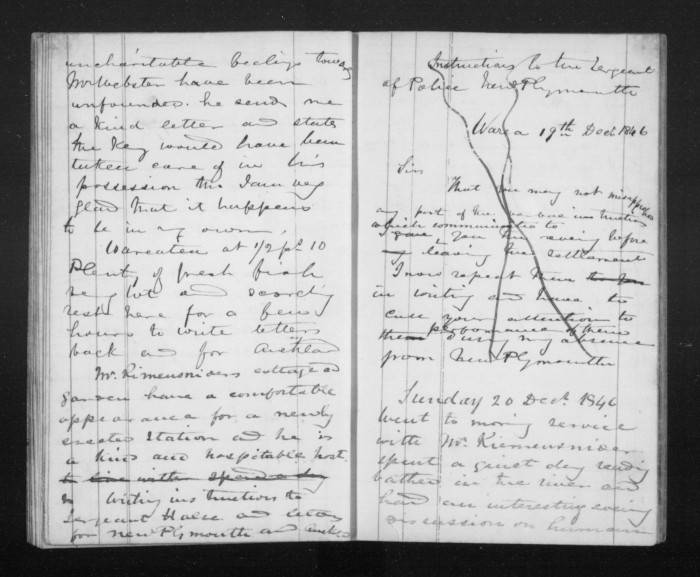 uncharitable feelings towards
Mr Webster have been
unfounded. he sends me
a kind letter and states
the Key would have been
taken care of in his
possession tho I am very
glad that it happens
to be in my own,
Wareatea at 1/2 pt 10
Plenty of fresh fish
very hot and scorching
rest here for a few
hours to write letters
back and for Auckland
Mr. Riemensniders cottage and
garden have a comfortable
appearance for a newly
erected Station and he is
a kind and hospitable host.
writing instructions to
Sergeant Halse and letters
for New Plymouth and Auckld
Instructions to the Sergeant
of Police New Plymouth
Warea 19th Decr 1846
Sir
That you may not misapprehend
any part of the instructions
which communicated to
I gave you this evening before
my leaving the settlement
I now repeat them to you
in writing and have to
your attention to
them performance of them
during my absence
from New Plymouth
Sunday 20 Decr. 1846
Went to morning service
with Mr. Riemensnider
spent a quiet day reading
bathed in the river and
had an interesting evening
discussion on human